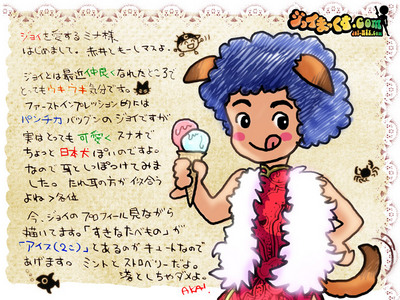 ジョイまっくす.com
joi-max.com
ジョイを愛するミナ様
はじめまして。赤井しもーしマスよ。
ジョイとは最近仲良くなれたところで
とってもウキウキ気分です。
ファーストインプレッション的には
パンチカパッツンのジョイですが
実はとっても可愛くスナオで
ちょっと日本犬ぽいのですよ。
なので耳としっぽつけてみま
した。たれ耳の方が似合う
よね>各位
今、ジョイのプロフィール見ながら
描いてます。「すきなたべもの」が
「アイス(2こ)」とあるのがキュートなので
あげます。ミントとストロベリーだよ。
落としちゃダメよ。
AKAI